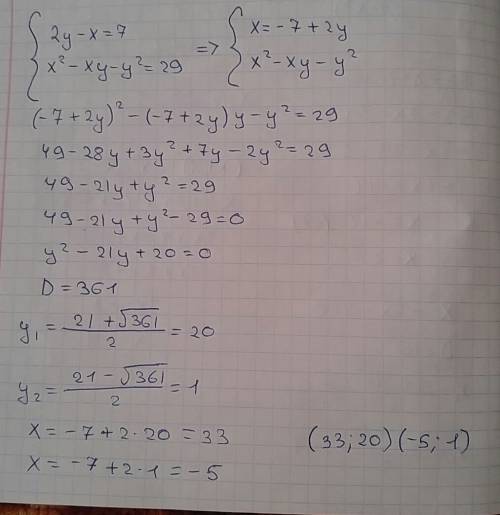 { 2y - x = 7 => { x = -7 + 2y
x² - xy - y² = 29 x² - xy - y²
(-7 + 2y)² - (-7 + 2y) y - y² = 29
49 - 28y + 3y² + 7y - 2y² = 29
49 - 21y + y² = 29
49 - 21y + y² - 29 = 0
y² - 21y + 20 = 0
D = 361
y₁ = (21 + √361)/2 = 20
y₂ = (21 - √361)/2 = 1
x = -7 + 2·20 = 33 (33; 20) (-5; 1)
x = -7 + 2·1 = -5